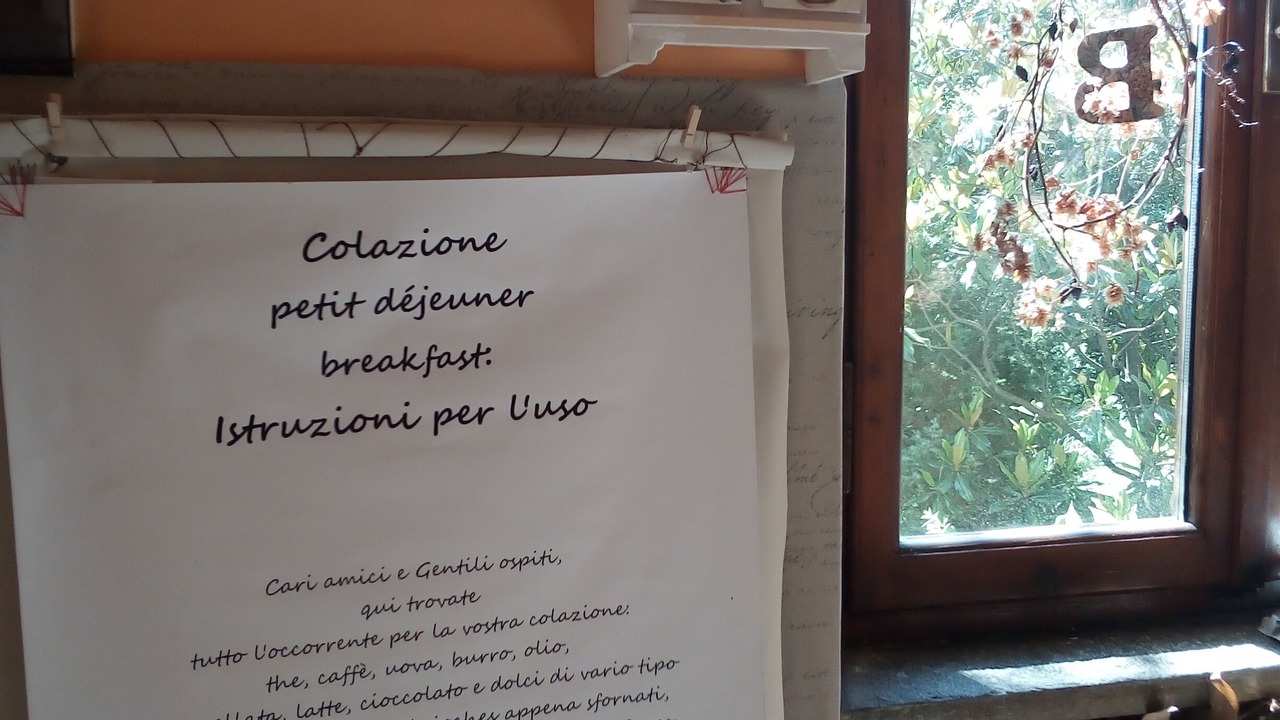 Colazione
petit déjeuner
breakfast:
Istruzioni per l'uso
Cari amici e Gentili ospiti,
qui trovate
tutto l'occorrente per la vostra colazione:
the, caffè, uova, burro, olio,
latte, cioccolato e dolci di vario tipo
appena sfornati,
B